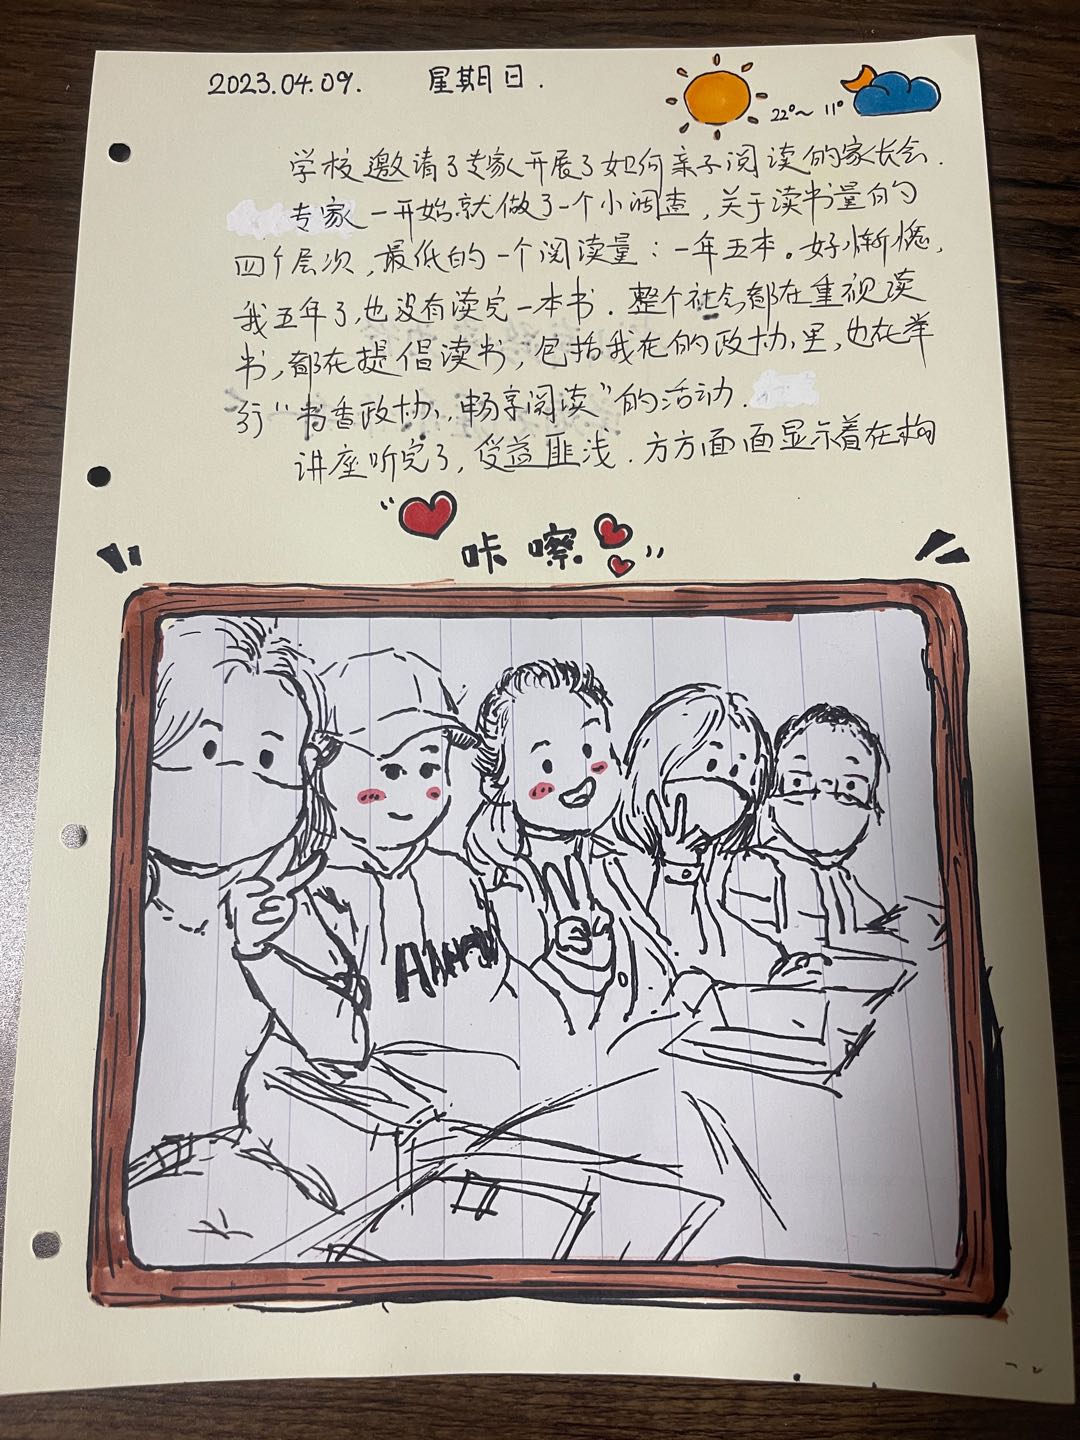 2023.04.09. 星期日.
22°~ 11°
学校邀请了专家开展了如何亲子阅读的家长会.
专家一开始就做了一个小调查,关于读书量的
四个层次,最低的一个阅读量:一年五本。好惭愧,
我五年了,也没有读完一本书.整个社会都在重视读
书,都在提倡读书,包括我在的政协里,也在举
行"书香政协,畅享阅读"的活动.
讲座听完了,受益匪浅.方方面面显示着在构
"咔嚓"